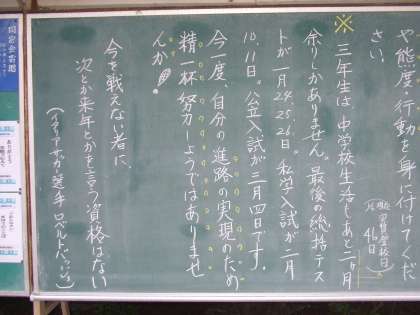 や態度・行動を身に付けてくだ
さい。
※三年生は、中学校生活もあと二ヶ月
余りしかありません。最後の総括テス
トが一月24.25.26日。私学入試が二月
10.11日。公立入試が三月四日です。
今一度、自分の進路の実現のため
精一杯努力しようではありませ
んか!
今を戦えない者に、
次とか来年とかを言う資格はない
(イタリアサッカー選手 ロベルト・バッジョ)
46日